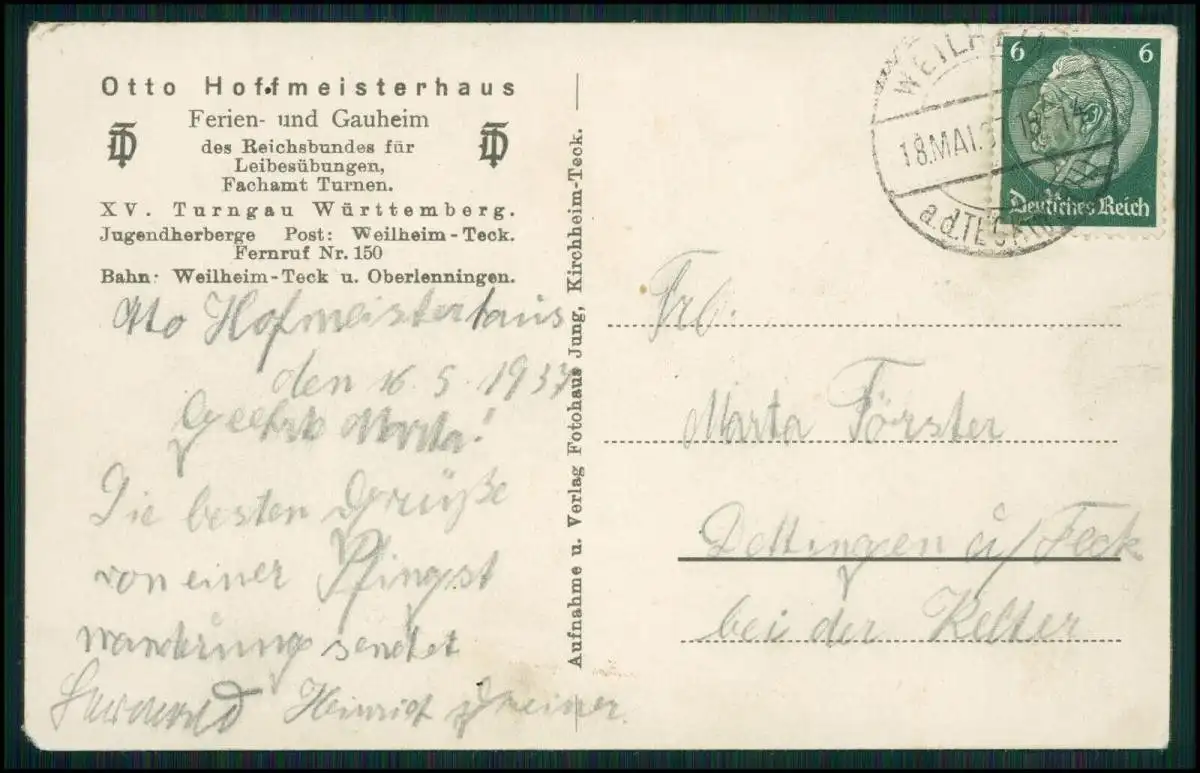 Otto Hoffmeisterhaus
Ferien- und Gauheim
des Reichsbundes für
Leibesübungen,
Fachamt Turnen.
XV. Turngau Württemberg.
Jugendherberge Post: Weilheim-Teck.
Fernruf Nr. 150
Bahn: Weilheim-Teck u. Oberlenningen.
Otto Hofmeisterhaus
den 16.5.1937
Geehrte Marta!
Die besten Grüße
von einer Pfingst
wanderung sendet
Heinrich
Aufnahme u. Verlag Fotohaus Jung, Kirchheim-Teck.
WEILHEIM
18.MAI.37
a.d.TECK
6 6
Deutsches Reich
Frl.
Marta Förster
Dettingen a/Teck
bei der Kelter